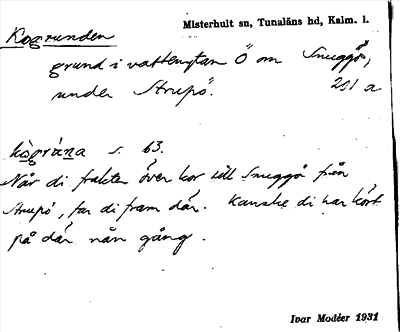 Misterhult sn, Tunaläns hd, Kalm. l.
Kogrunden
grund i vattenytan Ö om Snuggö,
under Strupö. 201 a
kògrúna s. 63.
När di frakter över kor till Snuggö från
Strupö, far di fram där. Kanske di har kört
på där nån gång.
Ivar Modéer 1931